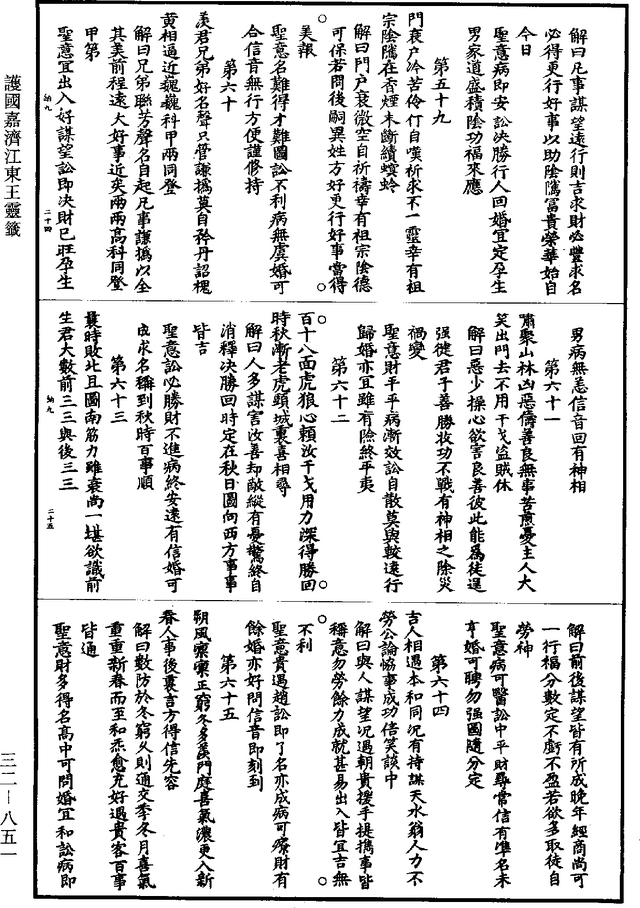 護國嘉濟江東王靈籤
解曰凡事謀望遠行則吉求財必豐求名
必得更行好事以助陰騭富貴榮華始自
今日
聖意病即安訟決勝行人回婚宜定孕生
男家道盛積陰功福來應
第五十九
門衰戶冷苦伶仃自嘆祈求不一靈幸有祖
宗陰騭在香煙未斷續螟蛉
解曰門戶衰微空自祈禱幸有祖宗陰德
可保若問後嗣異姓方好更行好事當得
美報
聖意名難得才難圖訟不利病無虞婚可
合信音無行方便謹修持
第六十
羨君兄弟好名聲只管謙撝莫自矜丹詔槐
黃相逼近巍巍科甲兩同登
解曰兄弟聯芳聲名自起凡事謙撝以全
其美前程遠大好事近矣兩兩高科同登
甲第
聖意宜出入好謀望訟即決財已旺孕生
納九
二十四
男病無恙信音回有神相
第六十一
嘯聚山林凶惡儔善良無事苦煎憂主人大
笑出門去不用干戈盜賊休
解曰惡少操心欲害良善彼此能為徒逞
强徒君子善勝收功不戰有神相之除災
禍變
聖意財平平病漸效訟自散莫與較遠行
歸婚亦宜雖有險終平夷
第六十二
百十八面虎狼心賴汝干戈用力深得勝回
時秋漸老虎頭城裏喜相尋
解曰人多謀害汝善却敵縱有憂驚終自
消釋決勝回時定在秋日圖向西方事事
皆吉
聖意訟必勝財不進病終安遠有信婚可
成求名稱到秋時百事順
第六十三
曩時敗北且圖南筋力雖衰尚一堪欲識前
生君大數前三三與後三三
納九
二十五
解曰前後謀望皆有所成晚年經商尚可
一行福分數定不虧不盈若欲多取徒自
勞神
聖意病可醫訟中平財尋常信有準名未
亨婚可聘勿强圖隨分定
第六十四
吉人相遇本和同況有持謀天水翁人力不
勞公論協事成功倍笑談中
解曰與人謀望況遇朝貴援手提攜事皆
稱意勿勞餘力成就甚易出入皆宜吉無
不利
聖意貴遇趙訟即了名亦成病可療財有
餘婚亦好問信音即刻到
第六十五
朔風凜凜正窮冬多羨門庭喜氣濃更入新
春人事後裏言方得信先容
解曰數防於冬窮久則通交季冬月喜氣
重重新春而至和炁愈充好遇貴客百事
皆通
聖意財多得名高中可問婚宜和訟病即
三二—八五一